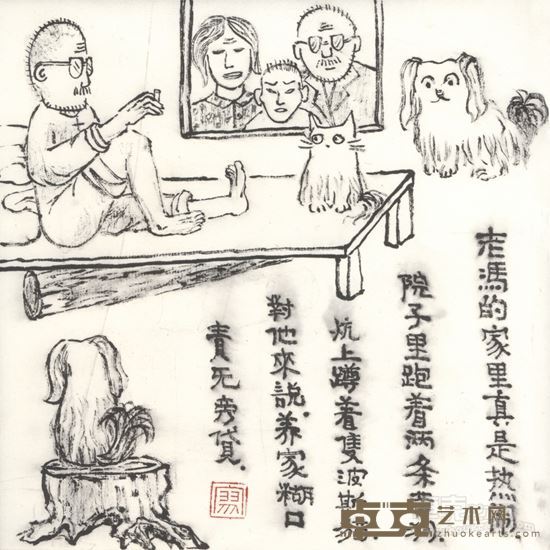 老馮的家里真是热闹
院子里跑着两条
炕上蹲着隻波斯
對他來説.养家糊口
責无旁貸.
艺术网
www.zhuokearts.com